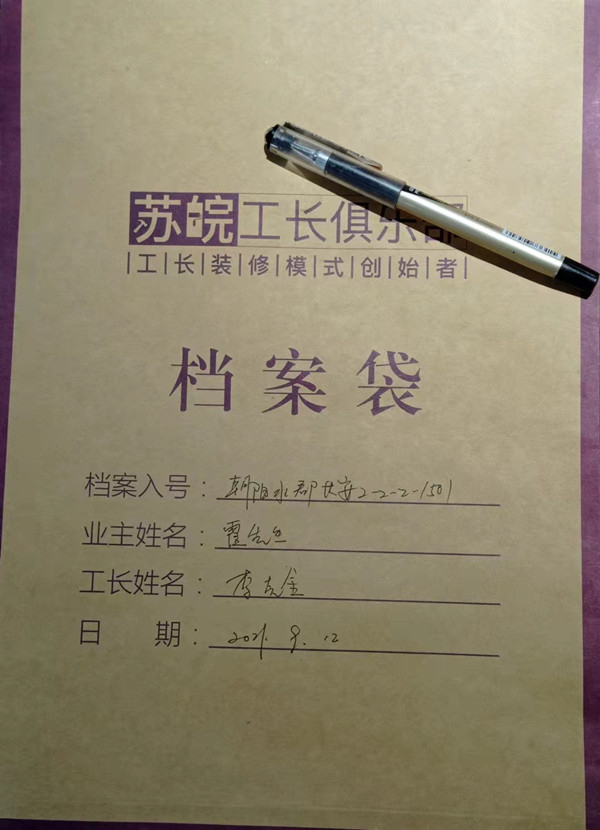 苏皖工长俱乐部
|工|长|装|修|模|式|创|始|者|
档案袋
档案入号：朝阳水郡长安2-2-2-1501
业主姓名：霍先生
工长姓名：李克金
日 期：2021.9.12